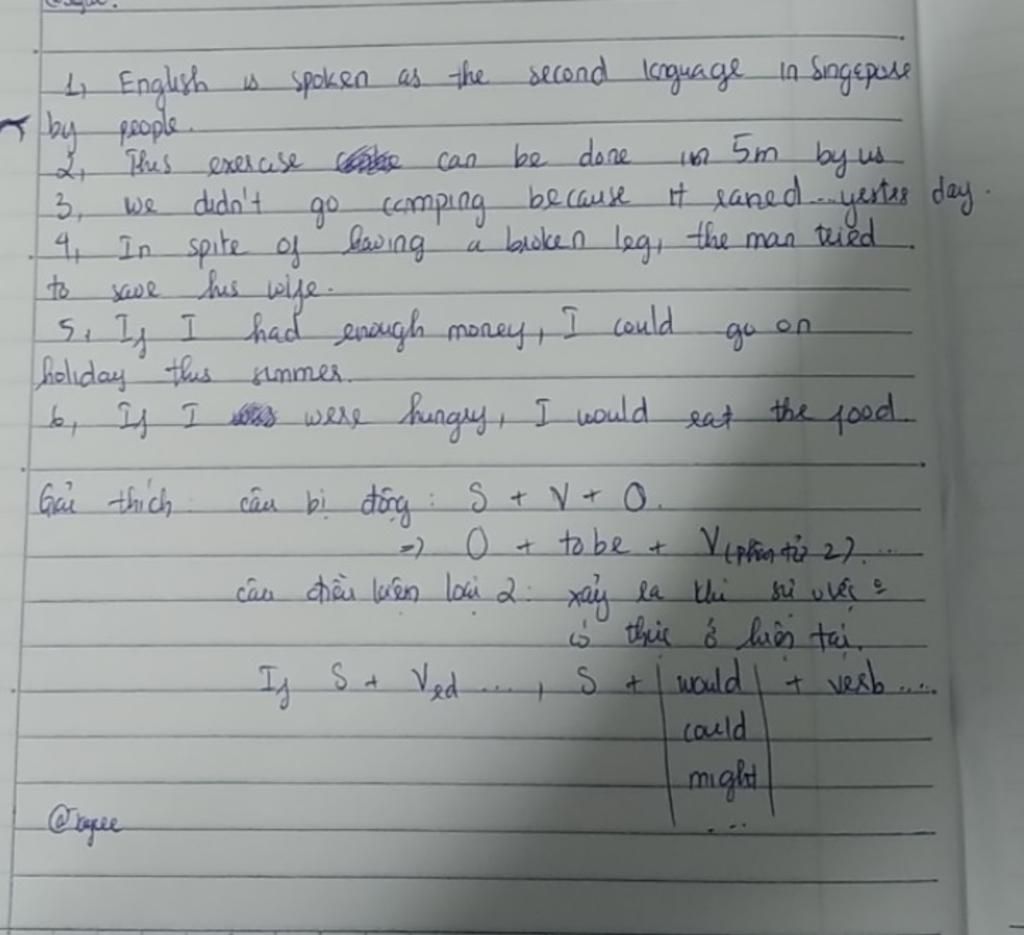 1, English is spoken as the second language in Singepore
by people.
2, This exercise can be done in 5m by us
3, we didn't go camping because it raned...yester day.
4, In spite of having a broken leg, the man tried
to save his wife.
5, If I had enough money, I could go on
holiday this summer.
6, If I were hungry, I would eat the food
Giải thích: câu bị động: S + V + O.
=> O + to be + V(phân từ 2)...
câu điều kiện loại 2: xảy ra khi sự việc o
có thực ở hiện tại.
If S + Ved ..., S + | would | + verb ....
could
might
...